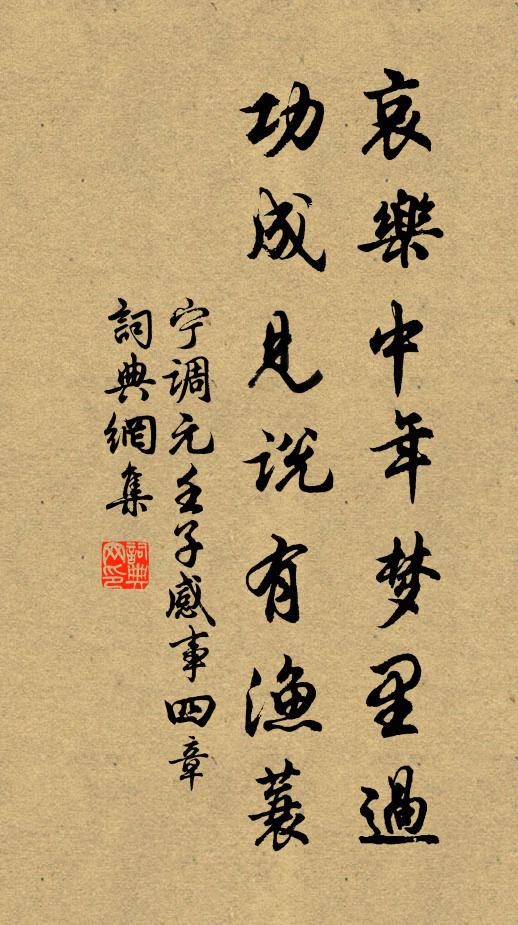 哀樂中年梦里過
功成見说有漁蓑
宁調元壬子感事四章
詞典網集
詞典网印